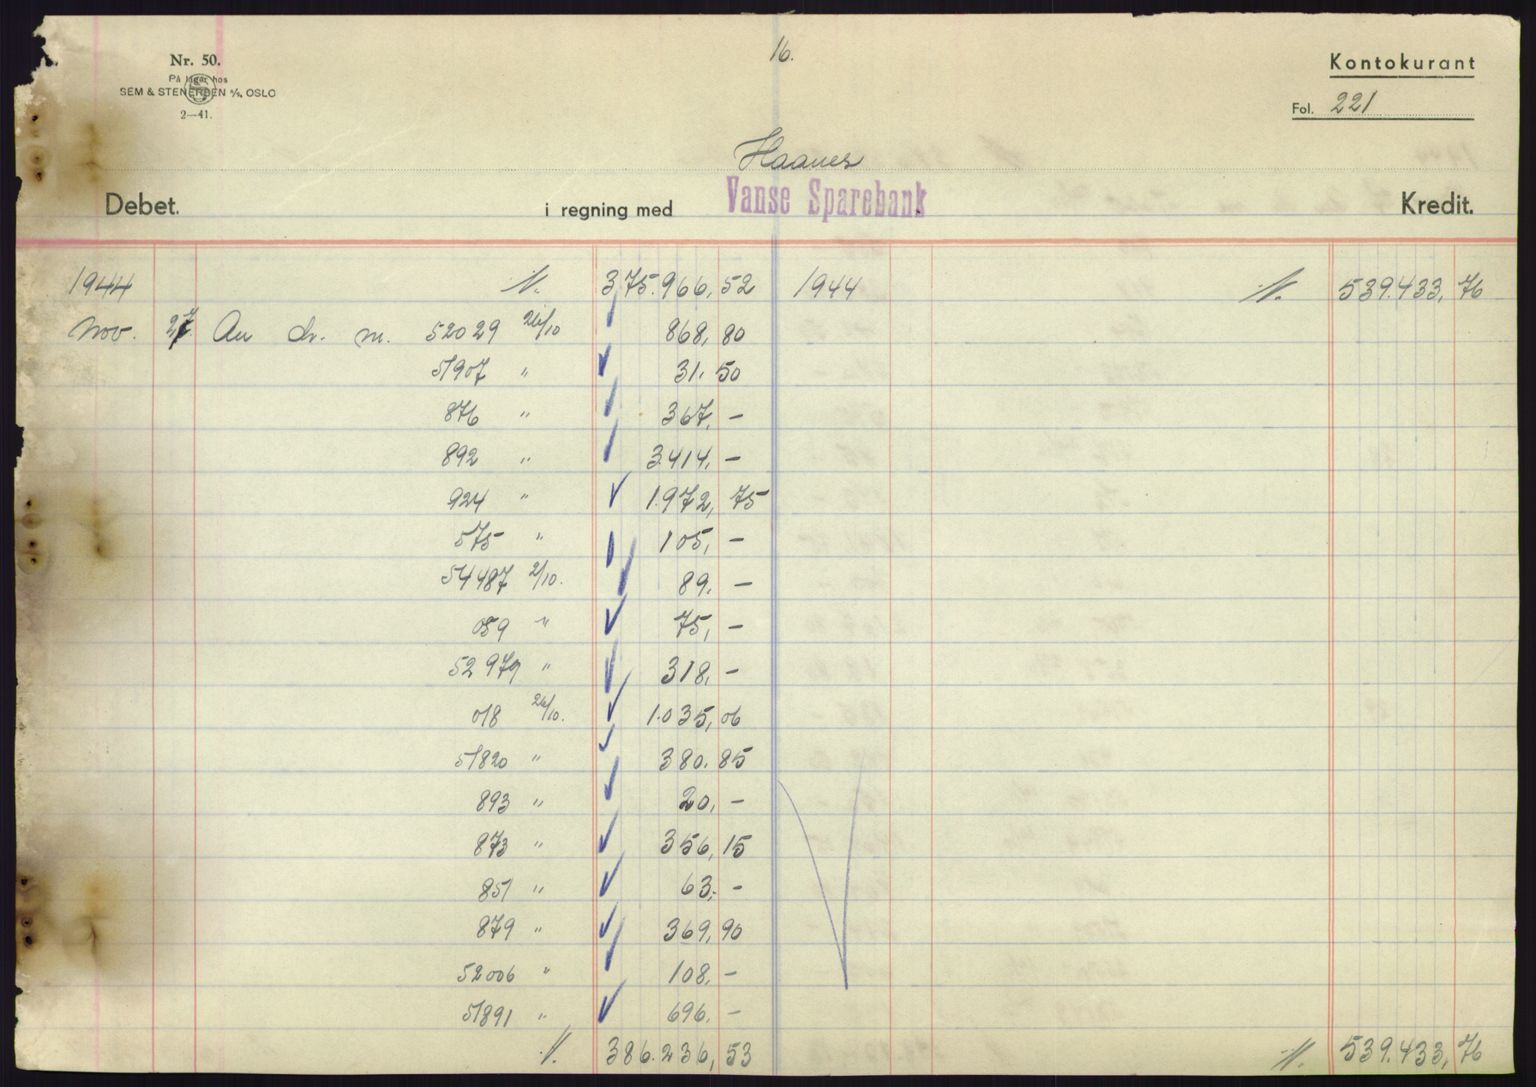 16.
Nr. 50.
På lager hos
SEM & STENERSEN A/S, OSLO
2—41.
Kontokurant
Fol. 221
Haanes
Debet. i regning med Vanse Sparebank Kredit.
1944 375.966,52 1944 539.433,76
Nov. 27 An chr. m. 52029 26/10 868,80
51907 " 31.50
876 " 367,-
892 " 3.414,-
924 " 1.972,75
575 " 105,-
54487 2/10. 89.-
059 " 75,-
52979 " 318,-
018 26/10. 1.035,06
51820 " 380.85
893 " 20,-
873 " 356,15
851 " 63,-
879 " 369,90
52006 " 108,-
51891 " 696.-
386.236,53 539.433,76